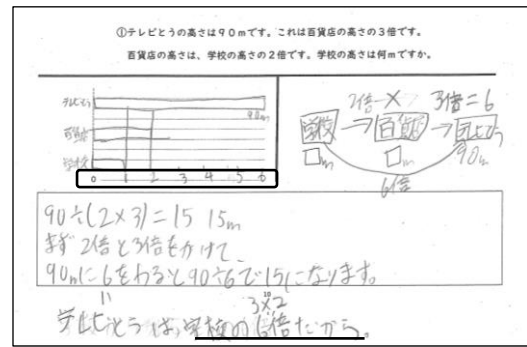 ①テレビとうの高さは90mです。これは百貨店の高さの3倍です。
百貨店の高さは、学校の高さの2倍です。学校の高さは何mですか。
テレビとう
90m
百貨店
学校
0 1 2 3 4 5 6
2倍 × 3倍=6
学校 → 百貨 → テレビとう
□m □m 90m
6倍
90÷(2×3)=15 15m
まず2倍と3倍をかけて、
90mに6をわると90÷6で15になります。
3×2
テレビとうは、学校の6倍だから。